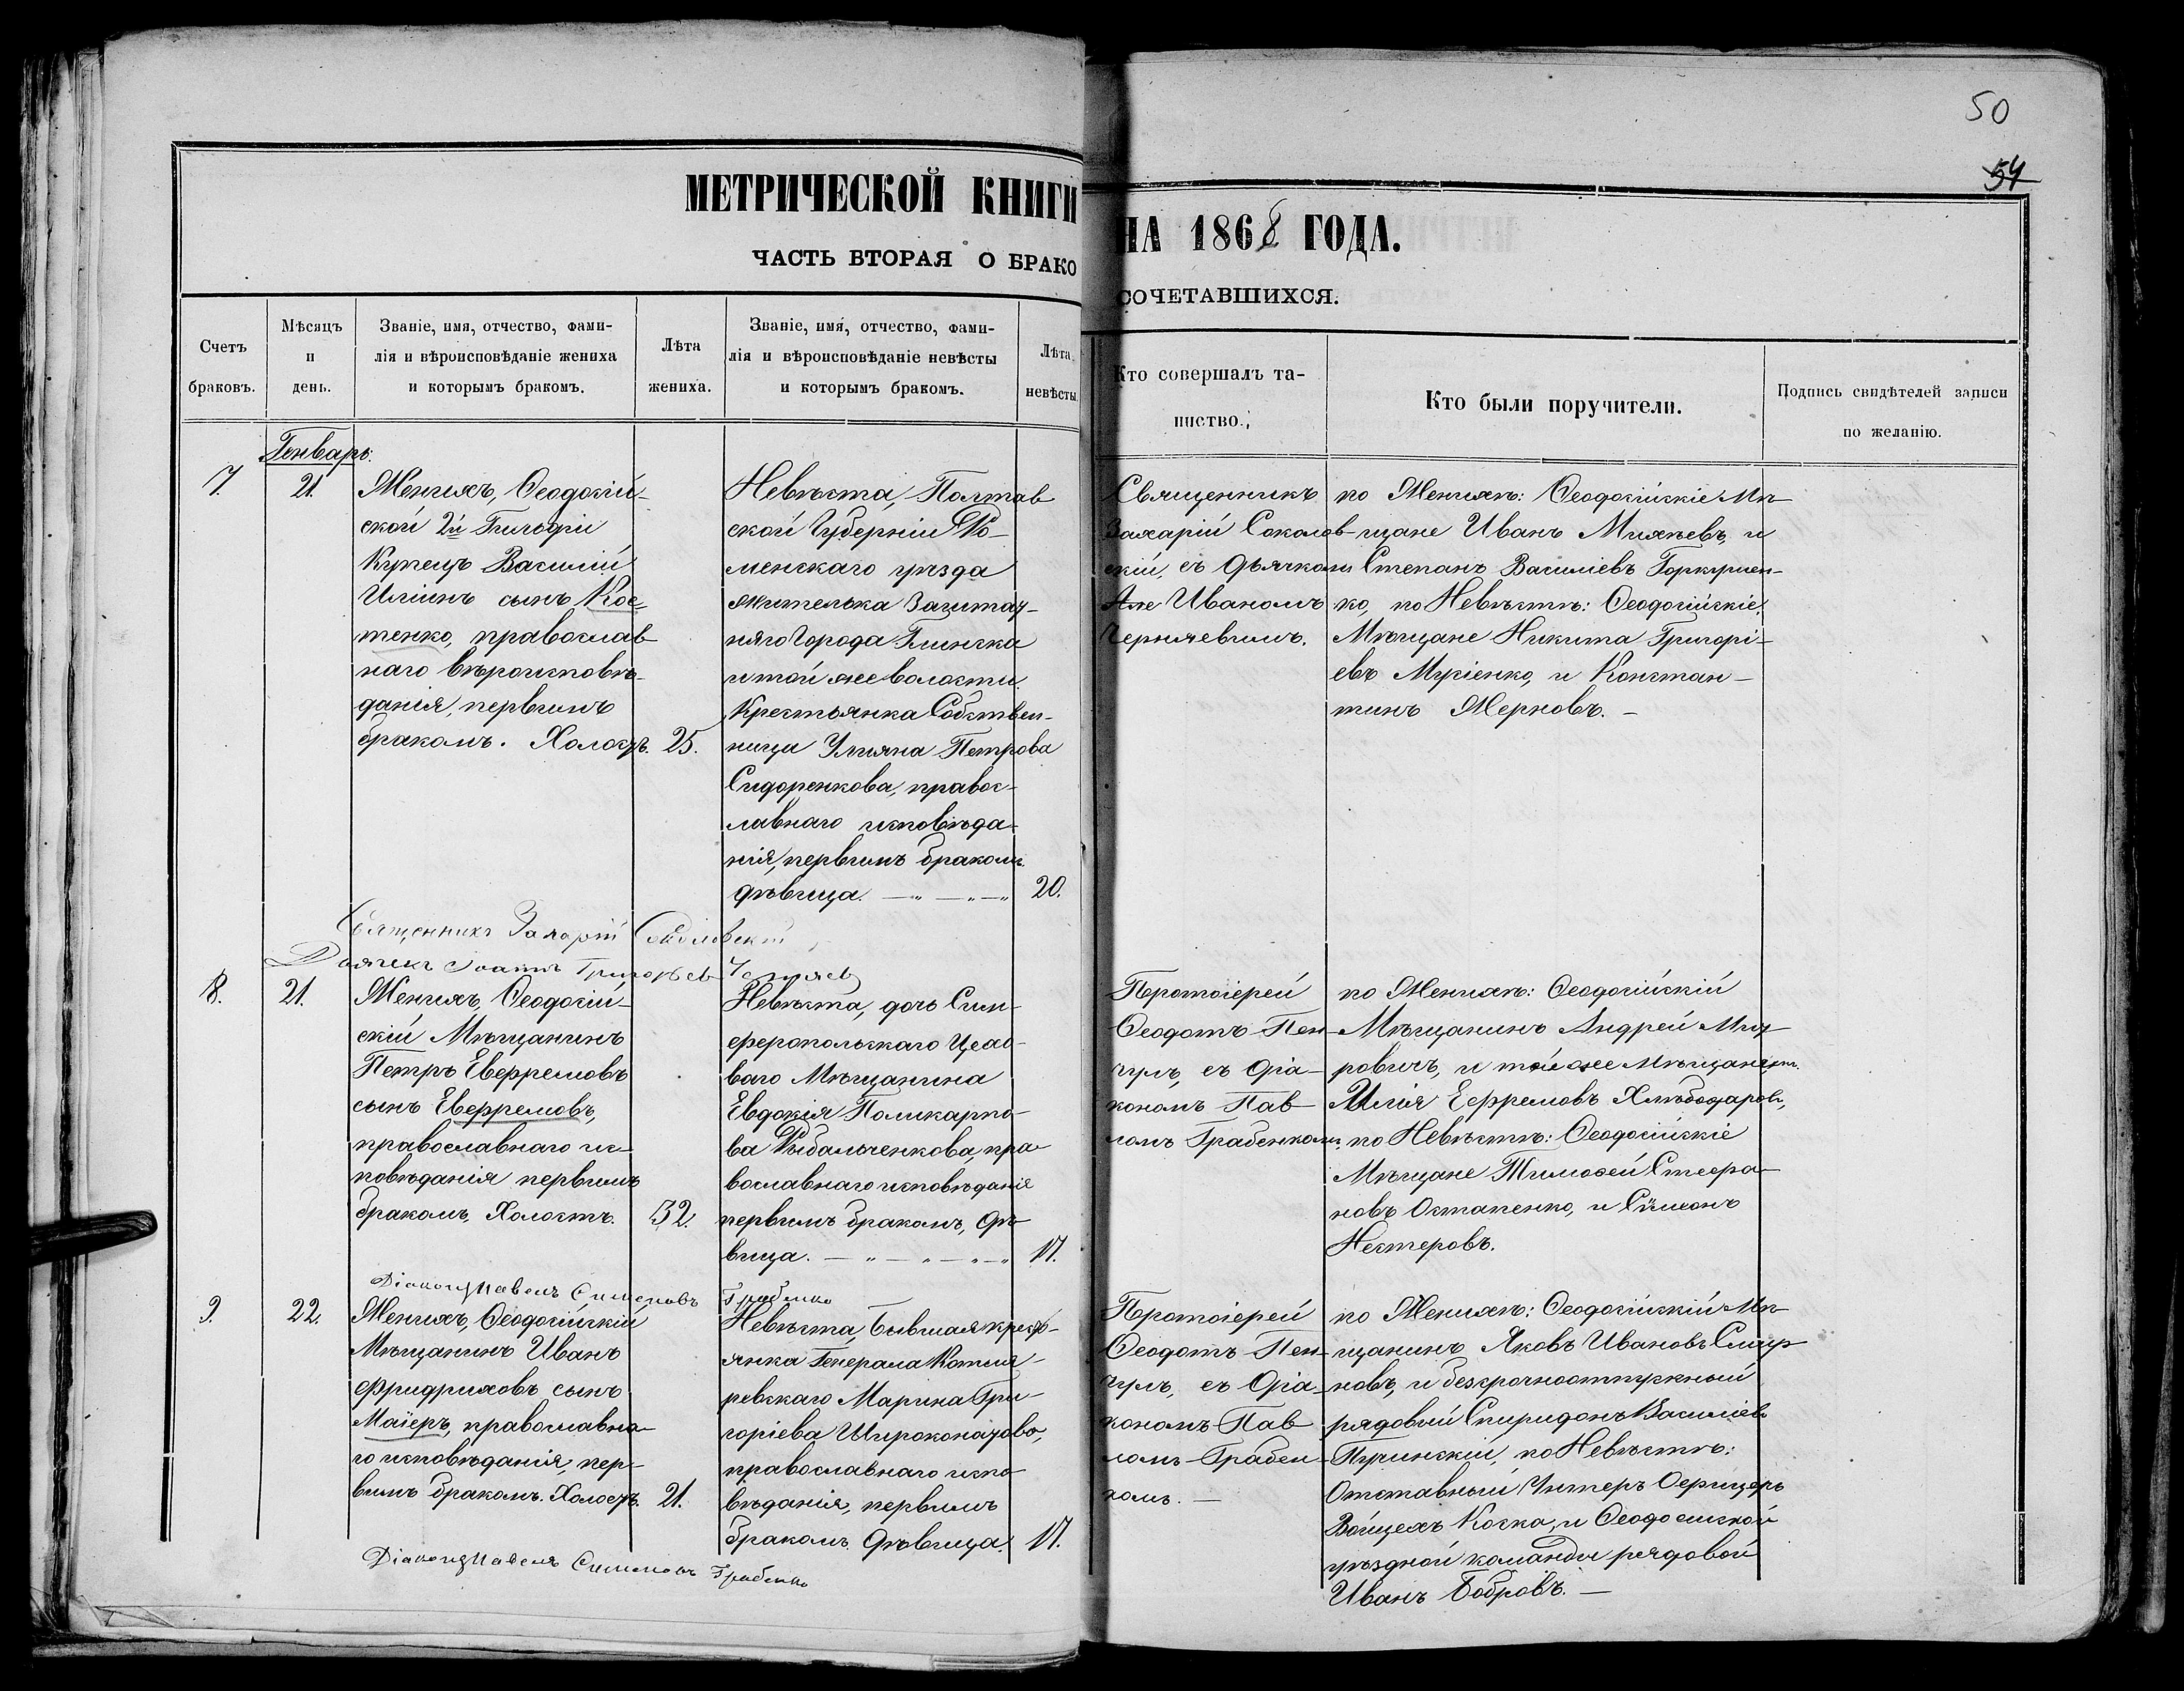 50
54
МЕТРИЧЕСКОЙ КНИГИ НА 1868 ГОДА.
ЧАСТЬ ВТОРАЯ О БРАКОСОЧЕТАВШИХСЯ.
Счетъ
браковъ.
Мѣсяцъ
и
день.
Званіе, имя, отчество, фами-
лія и вѣроисповѣданіе жениха
и которымъ бракомъ.
Лѣта
жениха.
Званіе, имя, отчество, фами-
лія и вѣроисповѣданіе невѣсты
и которымъ бракомъ.
Лѣта
невѣсты
Кто совершалъ та-
инство.
Кто были поручители.
Подпись свидѣтелей записи
по желанію.
Генварь.
7.
21.
Женихъ, Ѳеодосій-
ской 2й Гильдіи
Купецъ Василій
Иліинъ сынъ Кос-
тенко, православ
наго вѣроисповѣ-
данія, первымъ
бракомъ. Холостъ.
25.
Невѣста, Полтав
ской Губерніи Ро-
менскаго уѣзда
жителька Заштат-
наго Города Глинска
и той же волости
Крестьянка Собствен-
ница Ульяна Петрова
Сидоренкова, правос-
лавнаго исповѣда-
нія, первымъ бракомъ
дѣвица.
20.
Священникъ
Захарій Соколов-
скій, съ дьячком
Иваномъ
Черняевымъ.
по Женихѣ: Ѳеодосійскіе Мѣ-
щане Иванъ Михѣевъ, и
Степанъ Василіевъ Горкушен-
ко, по Невѣстѣ: Ѳеодосійскіе
Мѣщане Никита Григорі-
евъ Мусіенко, и Констан-
тинъ Жерновъ.
Священникъ Захарій Соколовскій
Дьячекъ Іоаннъ Григорьев Черняев
8.
21.
Женихъ, Ѳеодосій-
скій Мѣщанинъ
Петръ Евфремовъ
сынъ Евфремовъ,
православнаго ис-
повѣданія первымъ
бракомъ, Холостъ.
32.
Невѣста, дочь Сим-
феропольскаго Цехо-
ваго Мѣщанина
Евдокія Поликарпо-
ва Рыбальченкова, пра-
вославнаго исповѣданія
первымъ бракомъ, дѣ-
вица.
17.
Протоіерей
Ѳеодотъ Пен-
чулъ, съ діа-
кономъ Пав-
ломъ Грабенкомъ
по Женихѣ: Ѳеодосійскій
Мѣщанинъ Андрей Миу-
ровичъ, и той же мѣщанинъ
Илія Ефремовъ Хлѣбодаровъ,
по Невѣстѣ: Ѳеодосійскіе
Мѣщане Тимоѳей Стефа-
новъ Остапенко, и Сѵмеонъ
Нестеровъ.
Діаконъ Павелъ Симеоновъ Грабенко
9.
22.
Женихъ, Ѳеодосійскій
Мѣщанинъ Иванъ
Фридриховъ сынъ
Маіеръ, православна-
го исповѣданія, пер-
вымъ бракомъ. Холостъ.
21.
Невѣста, бывшая крест-
янка Генерала Котля-
ревскаго Марина Гри-
горіева
православнаго испо-
вѣданія, первымъ
бракомъ. Дѣвица.
17.
Протоіерей
Ѳеодотъ Пен-
чулъ, съ діа-
кономъ Пав-
ломъ Грабен-
комъ.
по Женихѣ: Ѳеодосійскій Мѣ-
щанинъ Яковъ Ивановъ Смир-
новъ, и безсрочноотпускный
рядовый Спиридонъ Василіев
по Невѣстѣ:
Отставный Унтеръ Офицеръ
Войцехъ Коска, и Ѳеодосійской
уѣздной команды рядовой
Иванъ Бобровъ.
Діаконъ Павелъ Симеоновъ Грабенко